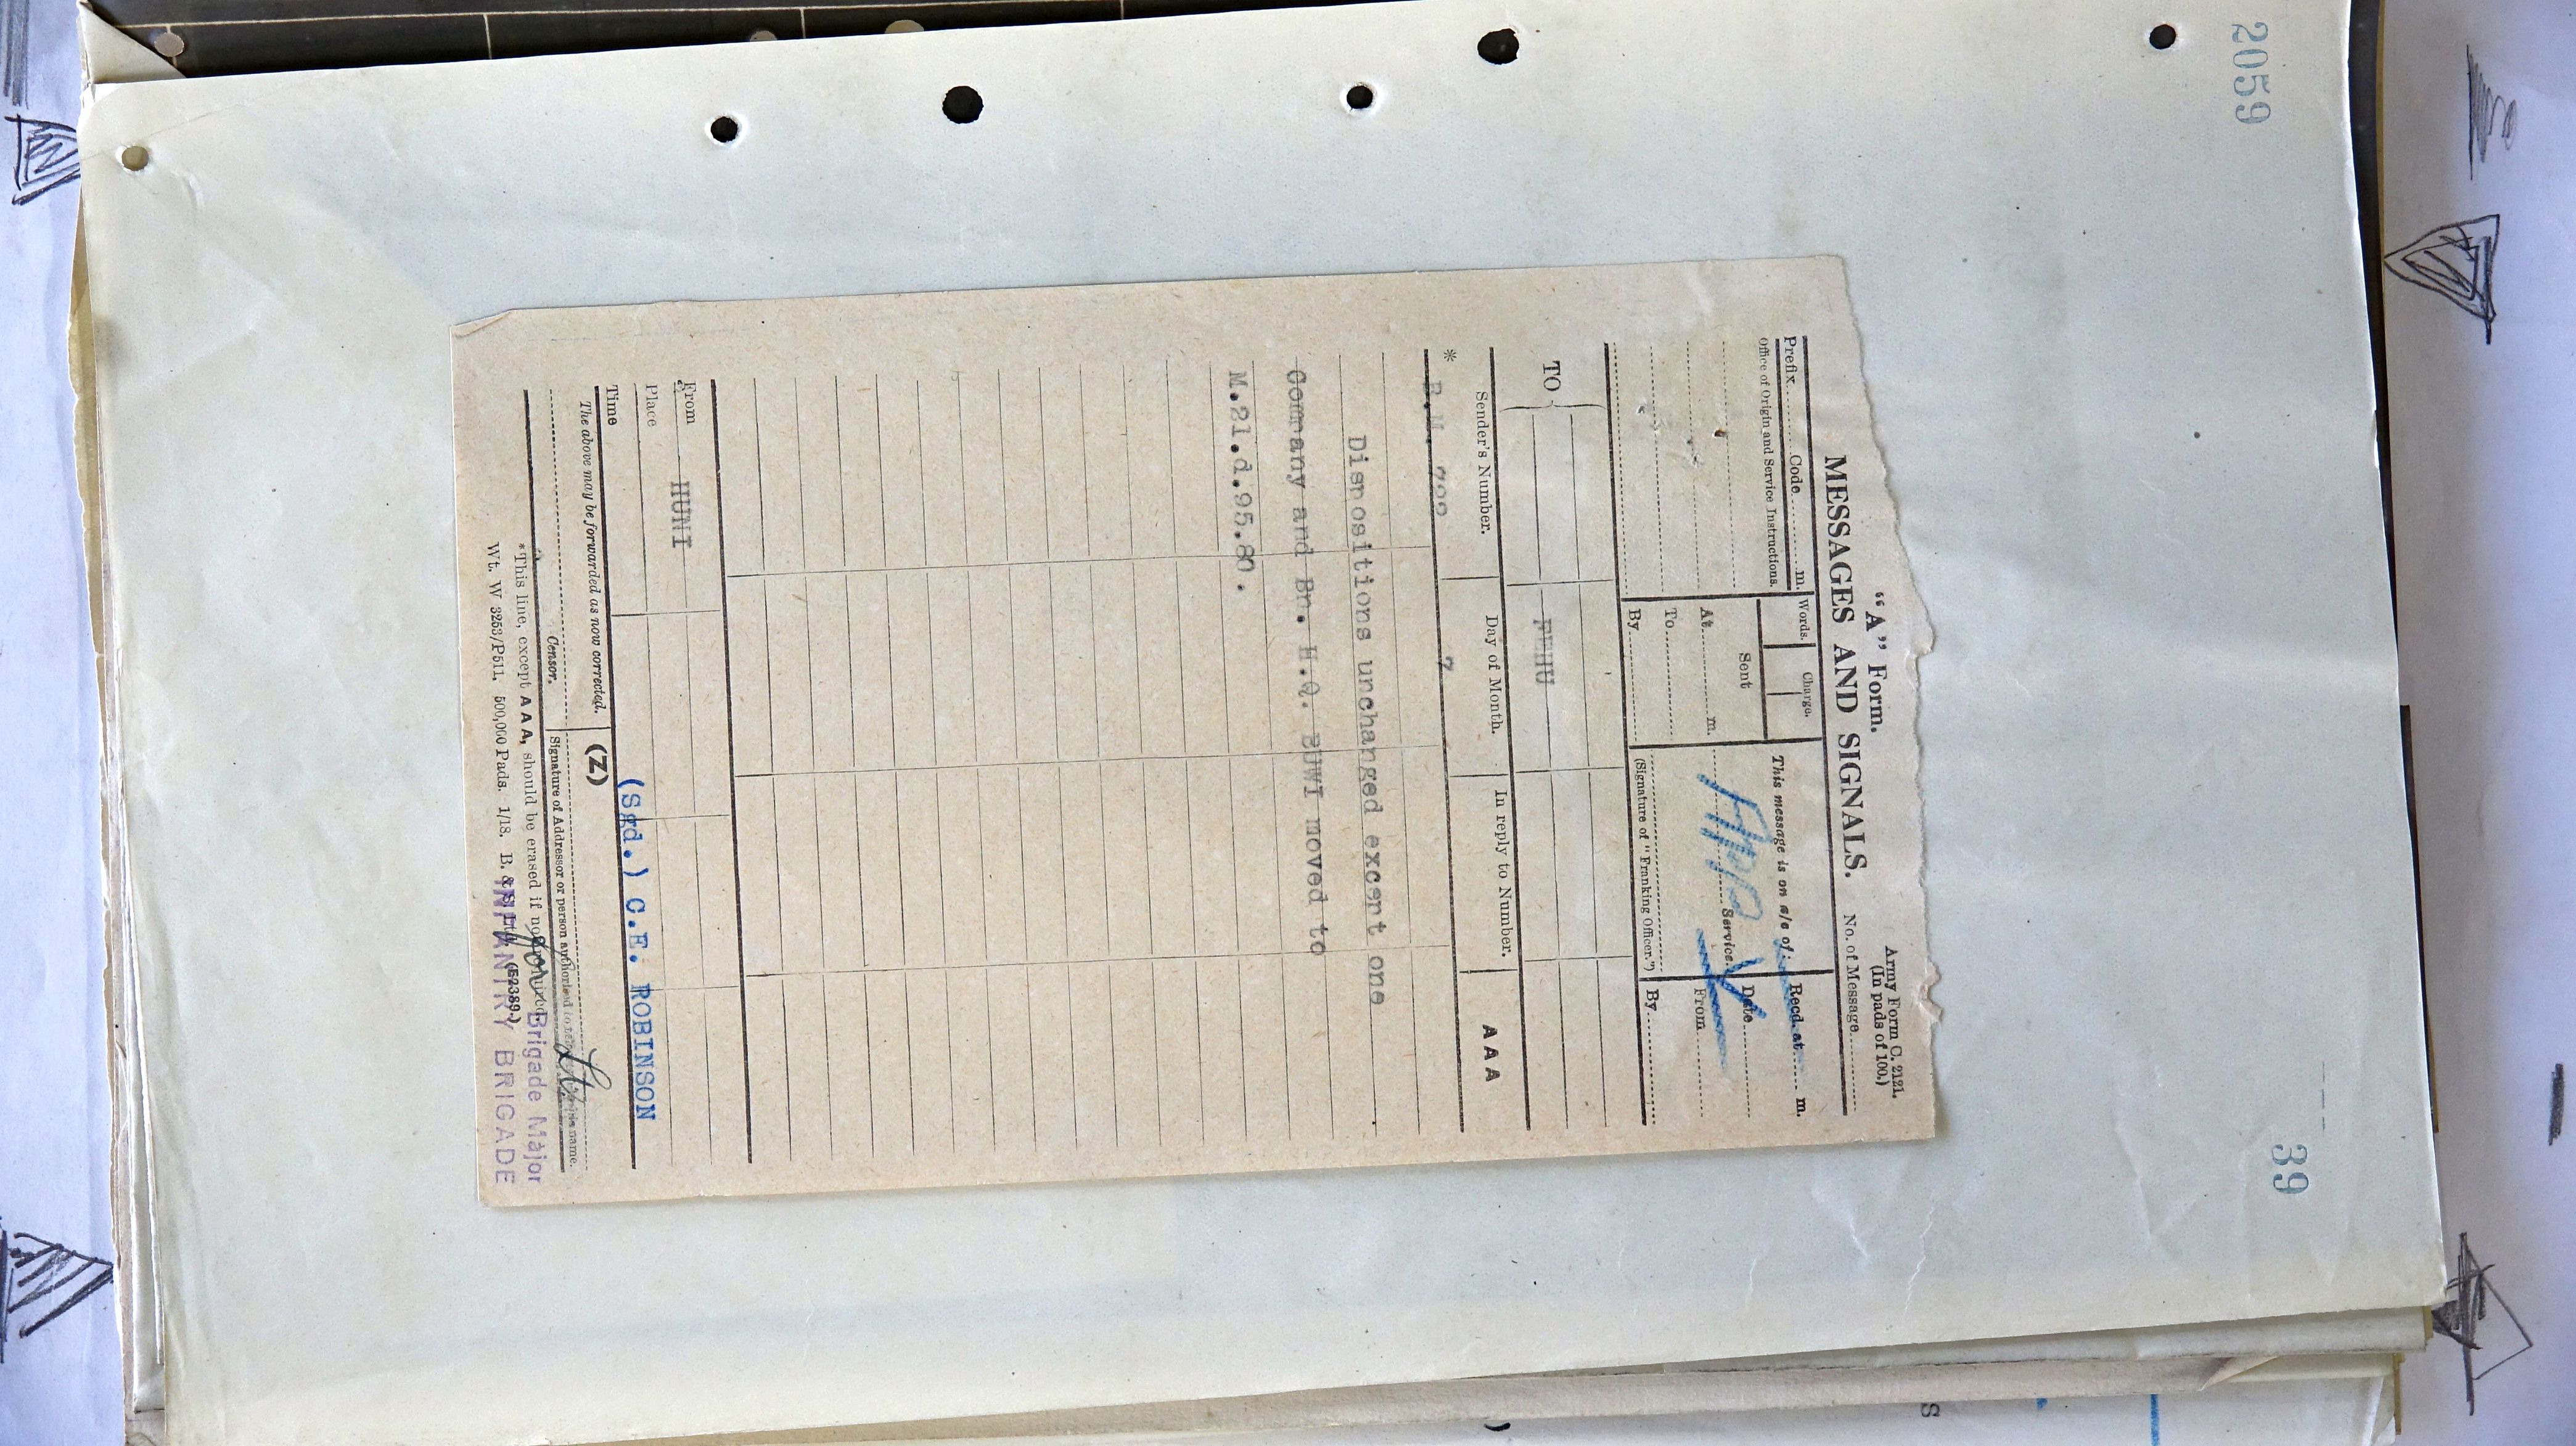 2059
39
"A" Form.
Army Form C. 2121.
(In pads of 100.)
MESSAGES AND SIGNALS.
No. of Message
Prefix Code m.
Words.
Charge.
This message is on a/c of:
Recd. at m.
Office of Origin and Service Instructions.
Sent
At m.
Service.
Date
To
From
By
(Signature of "Franking Officer.")
By
TO
FEHU
Sender's Number.
Day of Month.
In reply to Number.
AAA
*
B.M. 799
7
Dispositions unchanged except one
Company and Bn. H.Q. BUWI moved to
M.21.d.95.80.
From
HUNI
Place
Time
(Sgd.) C.E. ROBINSON
The above may be forwarded as now corrected.
(Z)
Censor.
Signature of Addressor or person authorised
name.
*This line, except AAA, should be erased if not required.
for
Lt.
Brigade Major
Wt. W 3253/P511. 500,000 Pads. 1/18. B. & S. Ltd. (E2389.)
INFANTRY BRIGADE